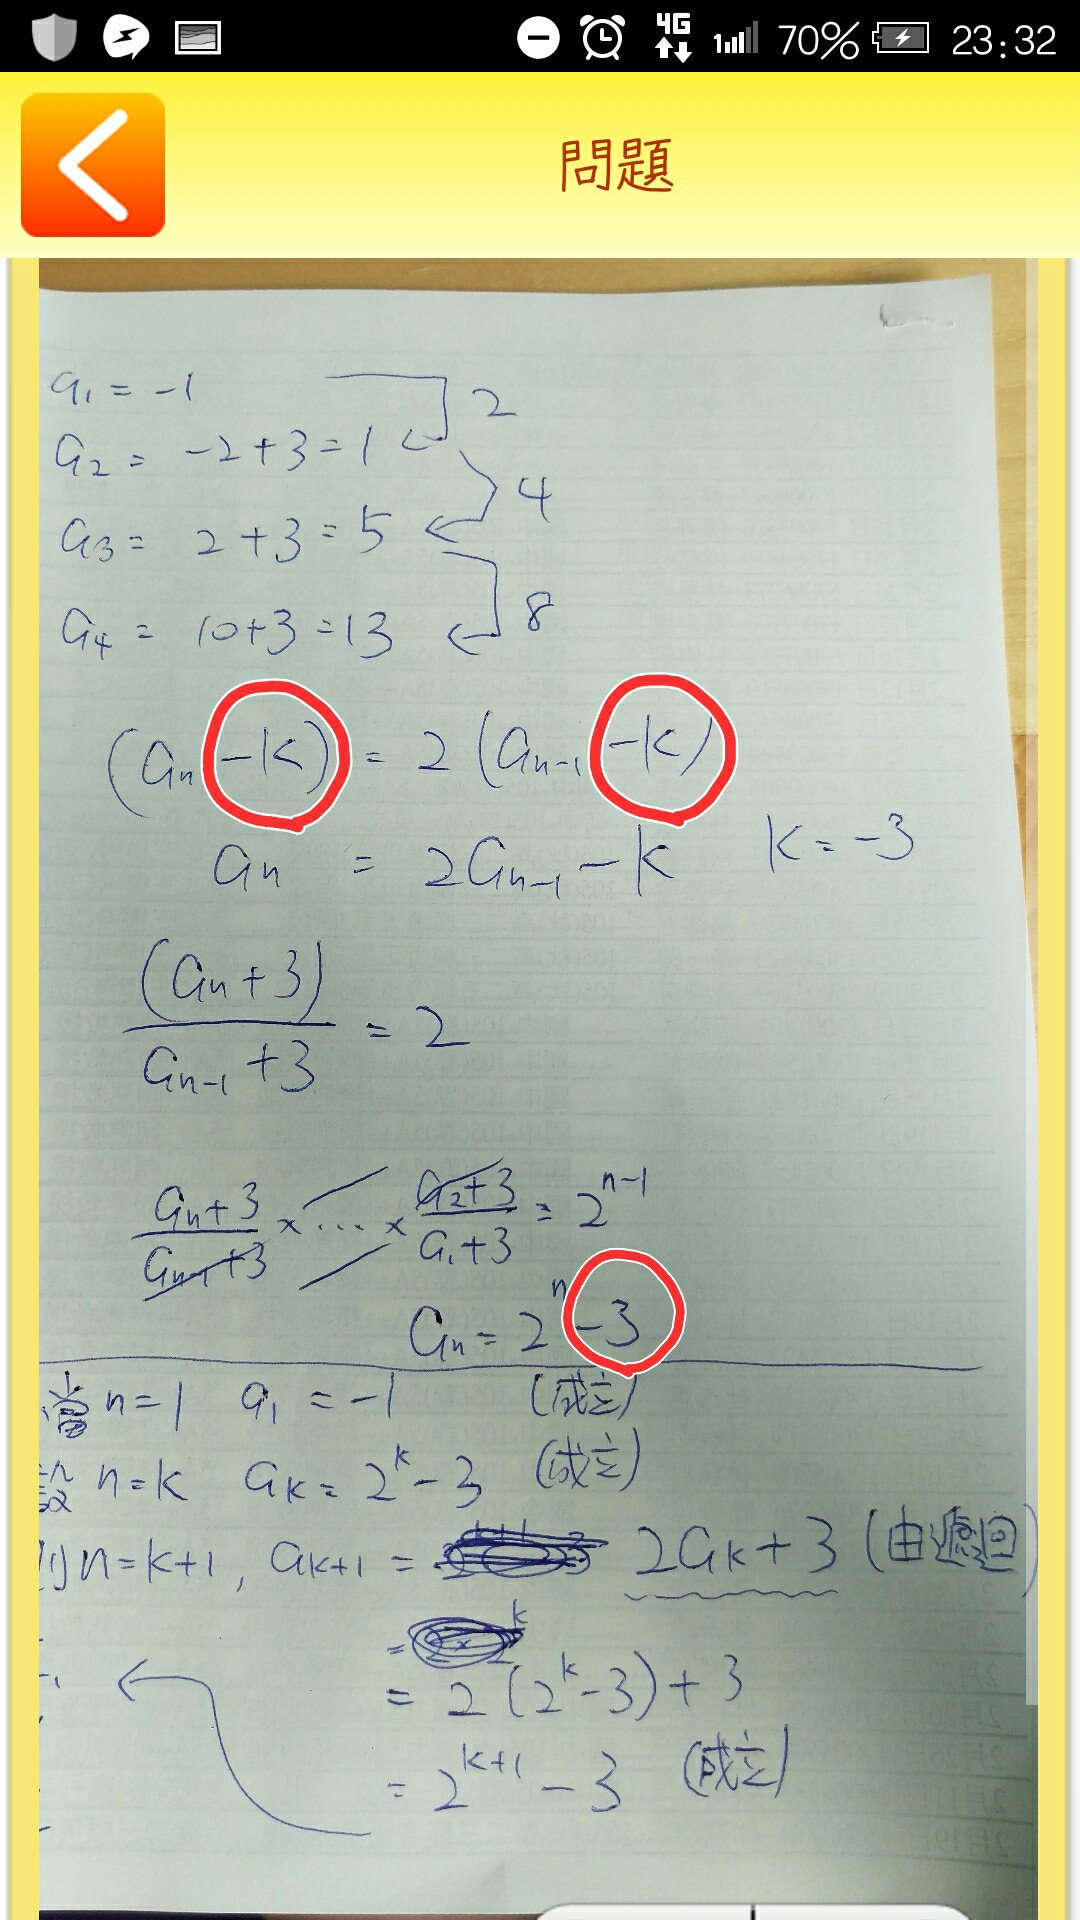 4G 70% 23:32
問題
a₁ = -1
2
a₂ = -2+3=1
4
a₃ = 2+3=5
8
a₄ = 10+3=13
(aₙ-k) = 2(aₙ₋₁-k)
aₙ = 2aₙ₋₁-k k=-3
(aₙ+3)/(aₙ₋₁+3) = 2
(aₙ+3)/(aₙ₋₁+3) × ... × (a₂+3)/(a₁+3) = 2ⁿ⁻¹
aₙ = 2ⁿ-3
當 n=1 a₁ = -1 (成立)
設 n=k aₖ = 2ᵏ-3 (成立)
則 n=k+1, aₖ₊₁ = 2aₖ+3 (由遞迴)
= 2(2ᵏ-3)+3
= 2ᵏ⁺¹-3 (成立)